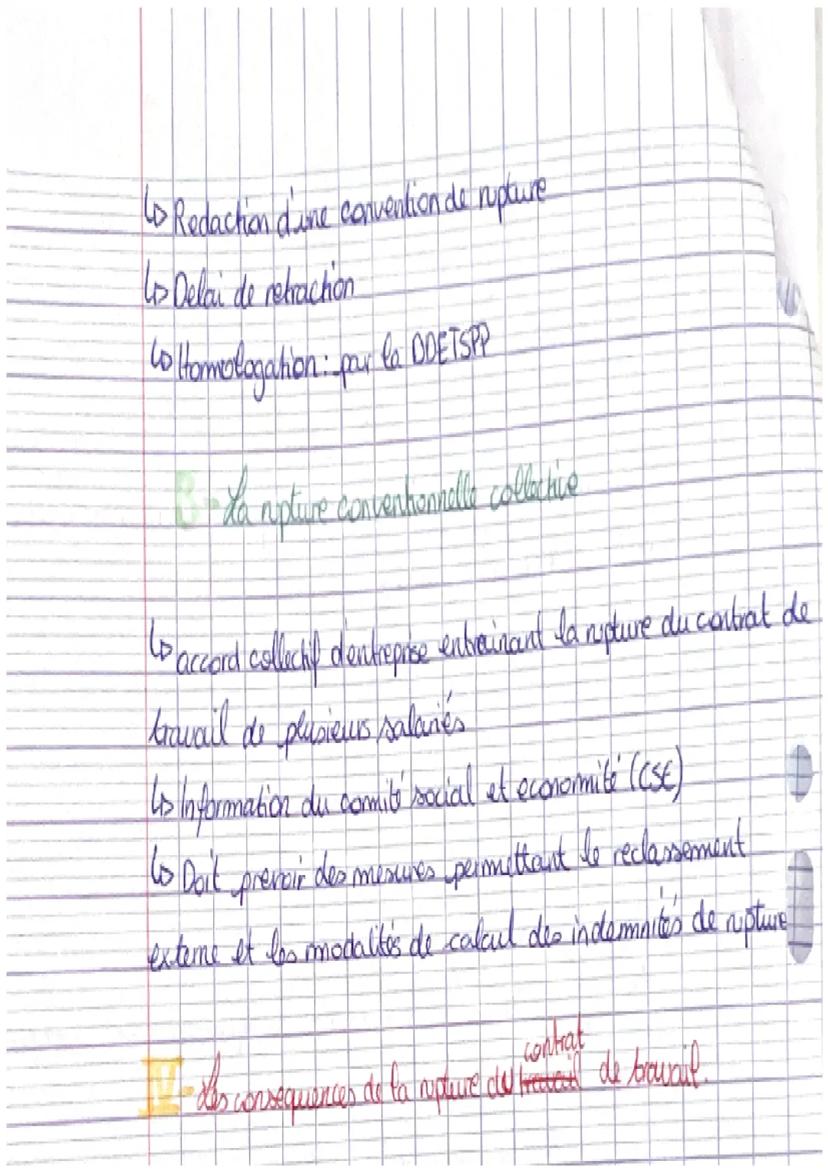 ↳ Redaction d'une convention de rupture
↳ Delai de retraction
↳ Homologation : par la DDETSPP
B - La rupture conventionnelle collective
↳ accord collectif d'entreprise entrainant la rupture du contrat de
travail de plusieurs salariés
↳ Information du comité social et economité (CSE)
↳ Doit prevoir des mesures permettant le reclassement
externe et les modalités de calcul des indemnités de rupture
contrat
IV - Les consequences de la rupture du travail de travail.